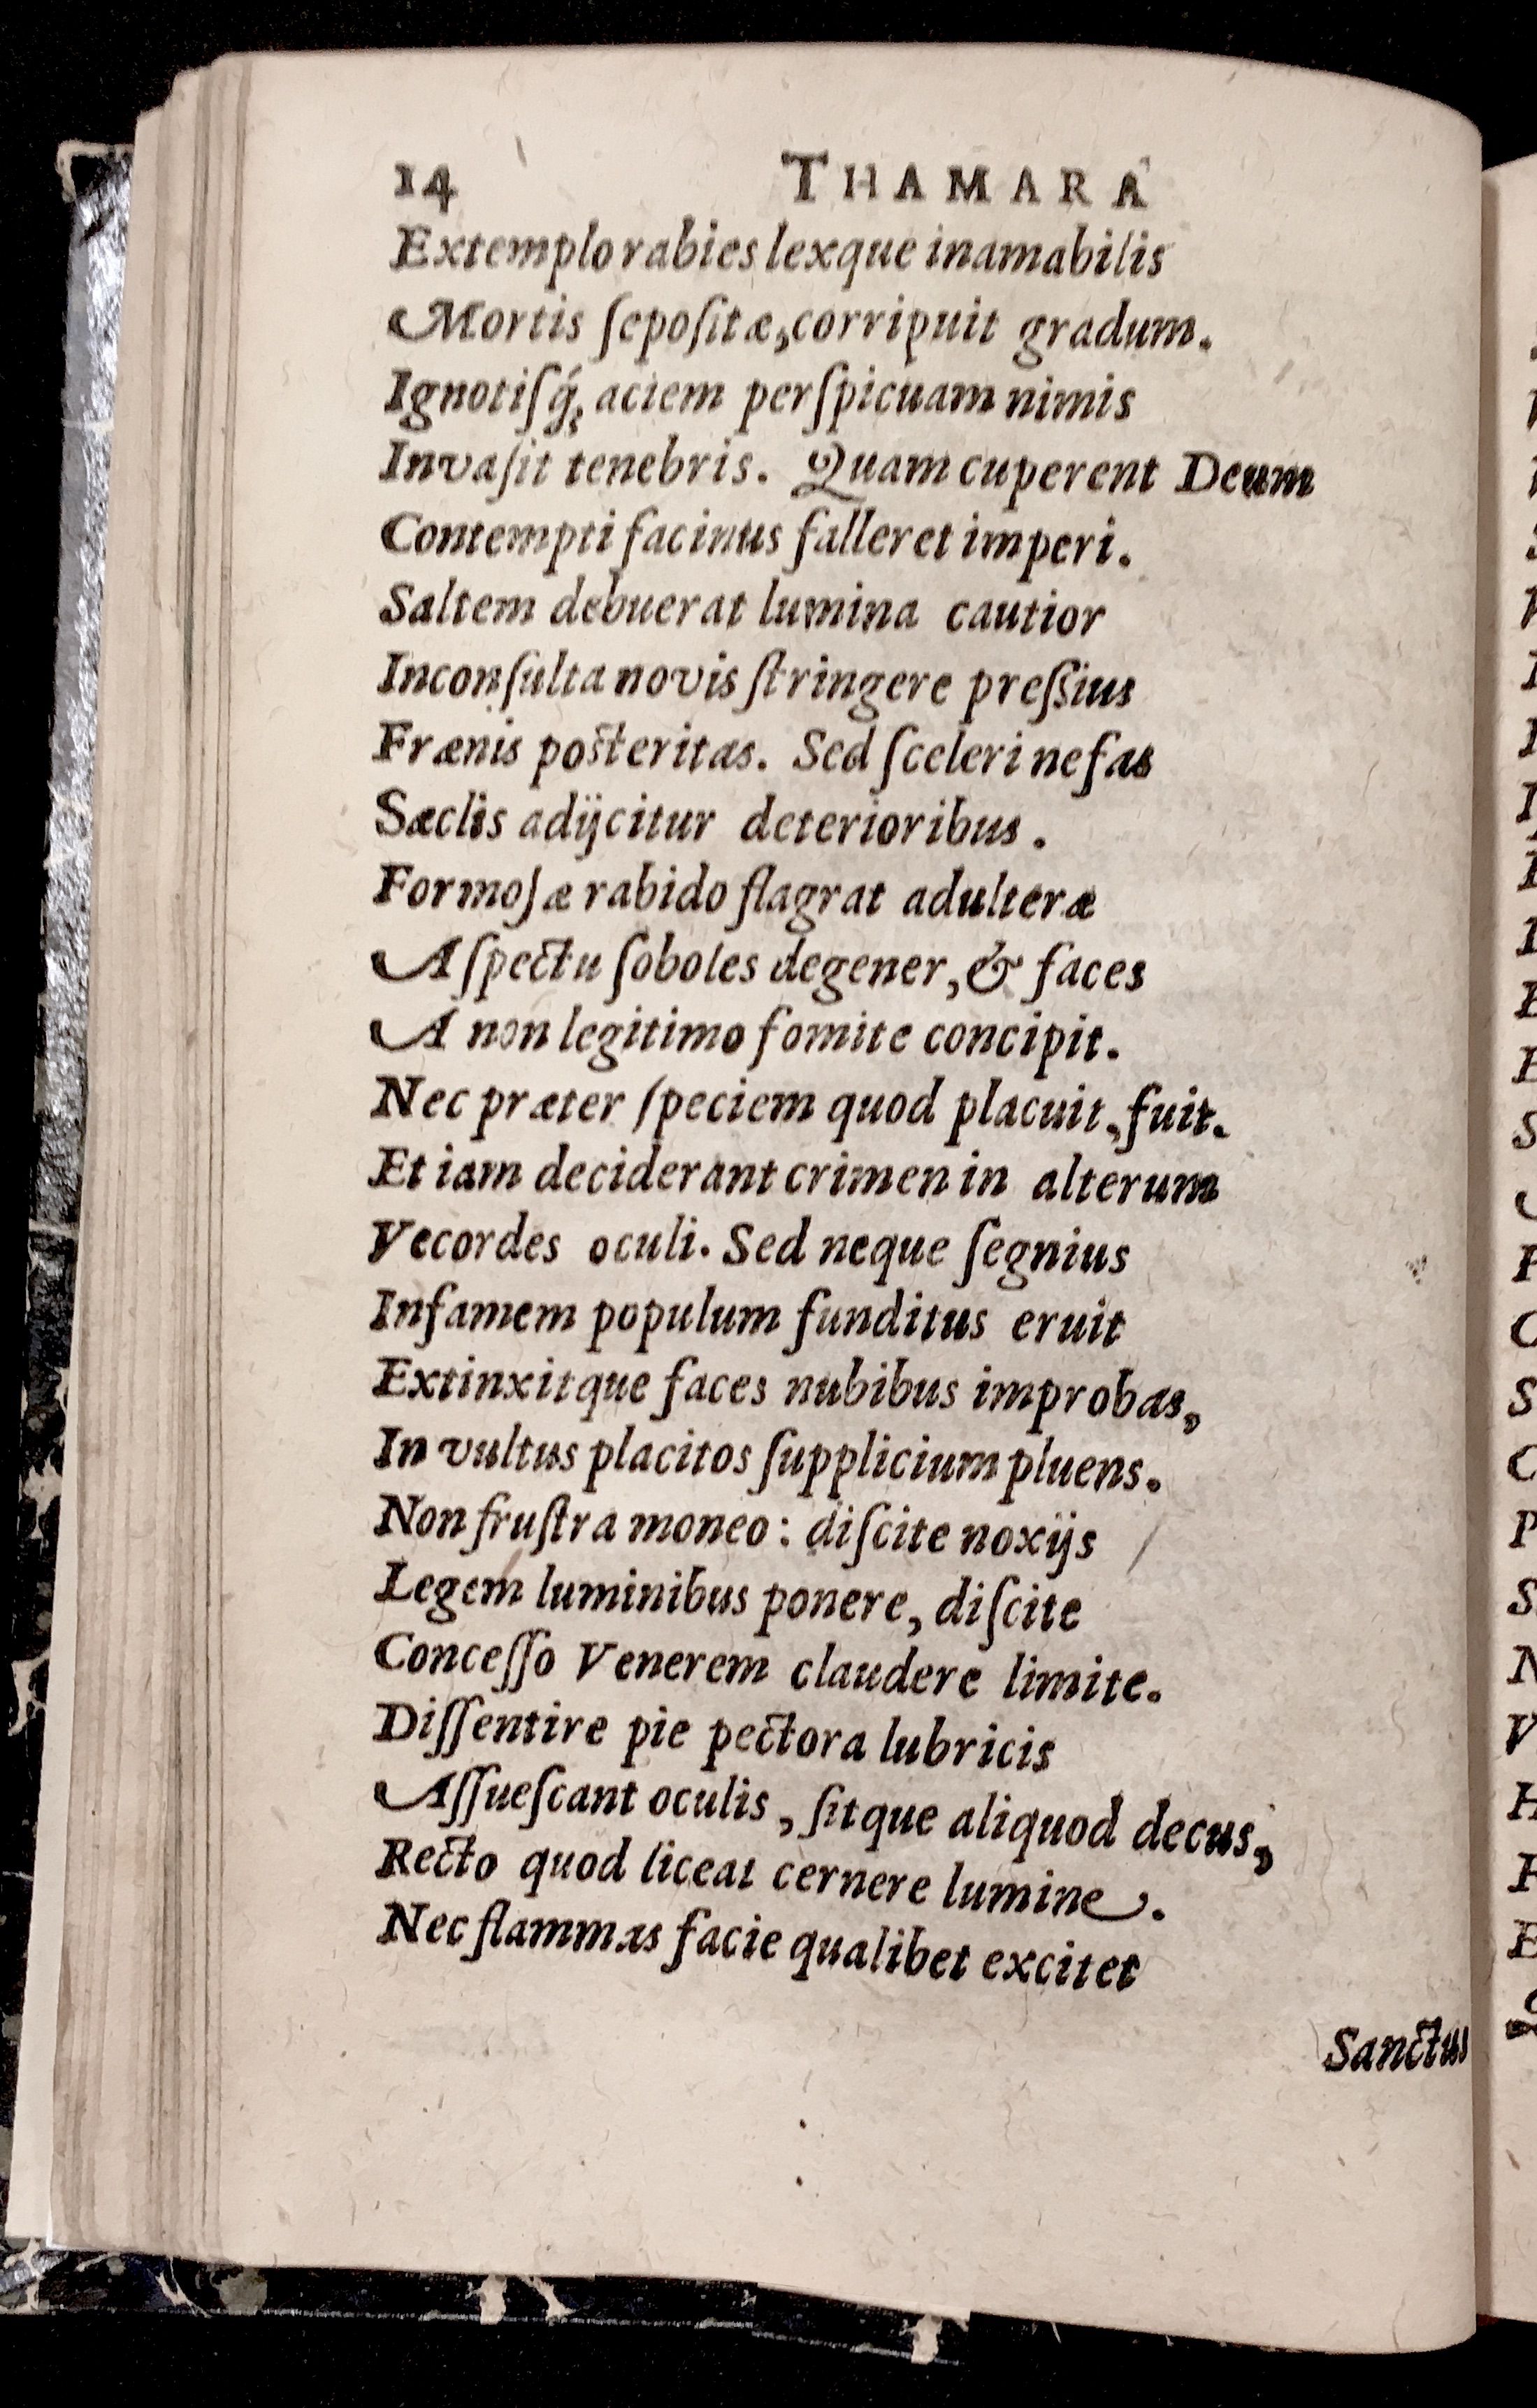 14 THAMARA
Extemplo rabies lexque inamabilis
Mortis ſepoſitæ, corripuit gradum.
Ignotiſq́; aciem perſpicuam nimis
Invaſit tenebris. Quam cuperent Deum
Contempti facinus falleret imperi.
Saltem debuerat lumina cautior
Inconſulta novis ſtringere preſſius
Frænis poſteritas. Sed ſceleri nefas
Sæclis adijcitur deterioribus.
Formoſæ rabido flagrat adulteræ
Aſpectu ſoboles degener, & faces
A non legitimo fomite concipit.
Nec præter ſpeciem quod placuit, fuit.
Et iam deciderant crimen in alterum
Vecordes oculi. Sed neque ſegnius
Infamem populum funditus eruit
Extinxitque faces nubibus improbas,
In vultus placitos ſupplicium pluens.
Non fruſtra moneo: diſcite noxijs
Legem luminibus ponere, diſcite
Conceſſo Venerem claudere limite.
Diſſentire pie pectora lubricis
Aſſueſcant oculis, ſitque aliquod decus,
Recto quod liceat cernere lumine.
Nec flammas facie qualibet excitet
Sanctus